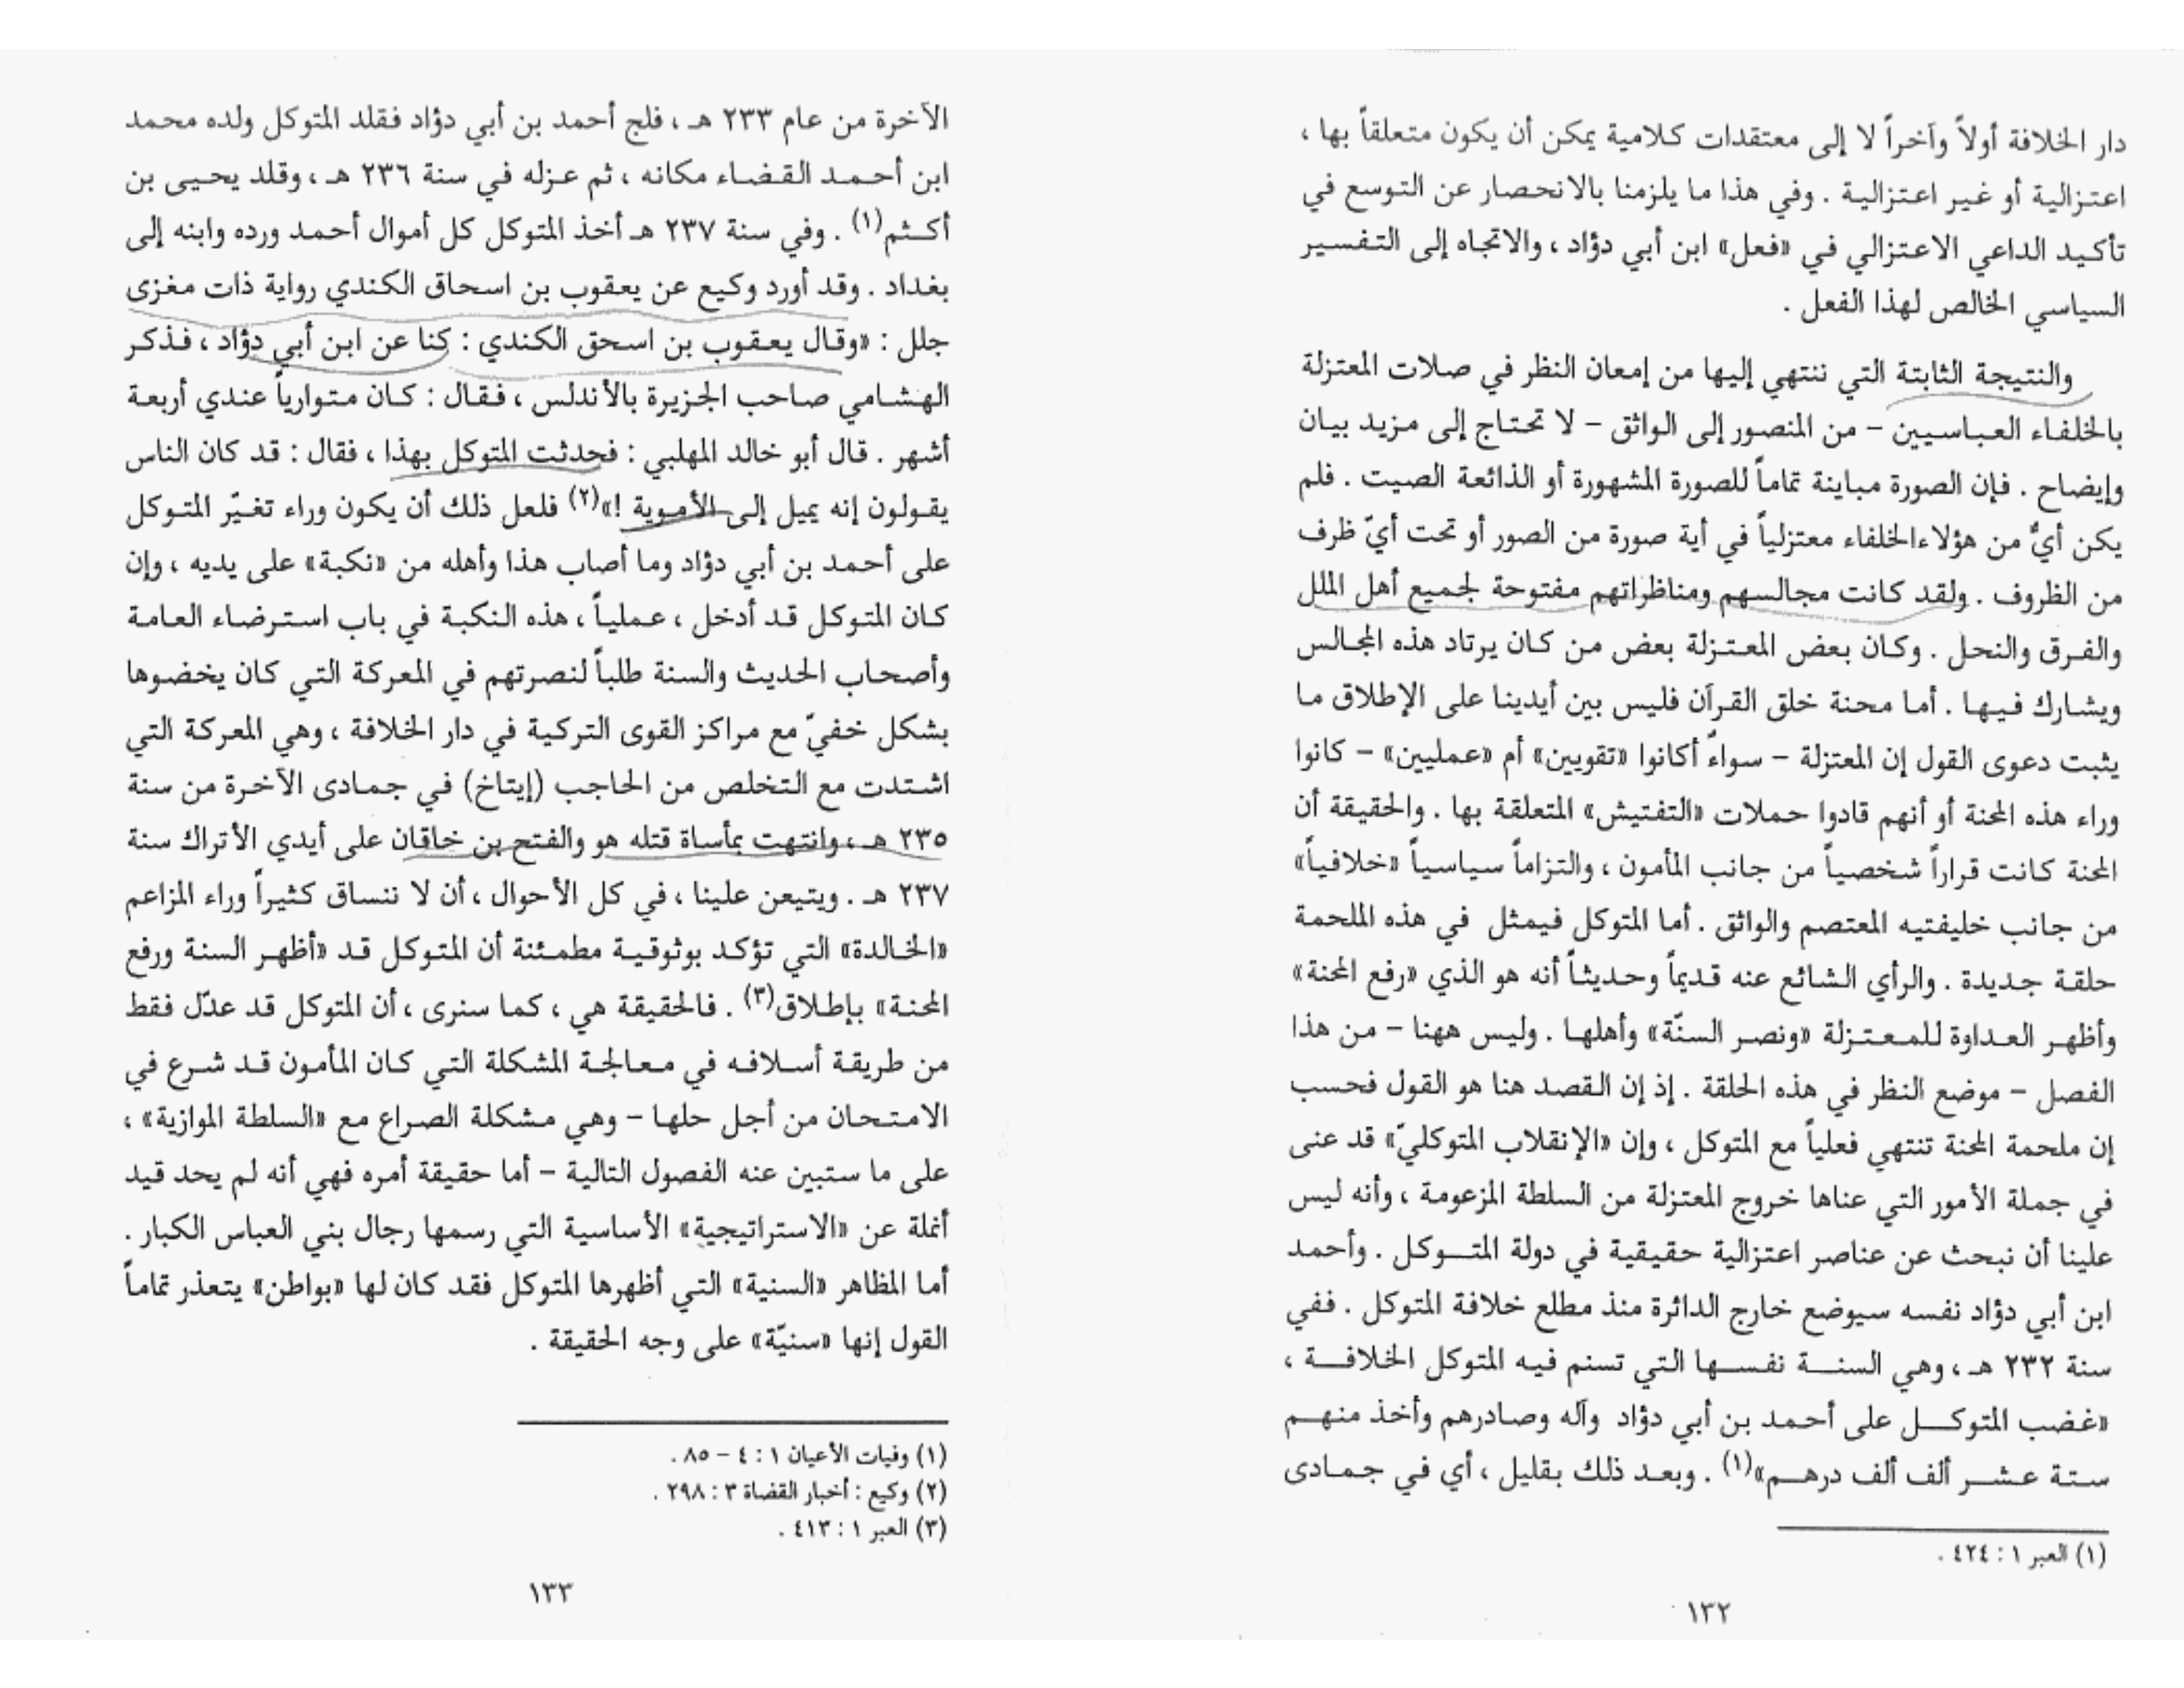 دار الخلافة أولاً وآخراً لا إلى معتقدات كلامية يمكن أن يكون متعلقاً بها ،
اعتزالية أو غير اعتزالية . وفي هذا ما يلزمنا بالانحصار عن التوسع في
تأكيد الداعي الاعتزالي في «فعل» ابن أبي دؤاد ، والاتجاه إلى التفسير
السياسي الخالص لهذا الفعل .
والنتيجة الثابتة التي ننتهي إليها من إمعان النظر في صلات المعتزلة
بالخلفاء العباسيين – من المنصور إلى الواثق – لا تحتاج إلى مزيد بيان
وإيضاح . فإن الصورة مباينة تماماً للصورة المشهورة أو الذائعة الصيت . فلم
يكن أيٌّ من هؤلاء الخلفاء معتزلياً في أية صورة من الصور أو تحت أيّ ظرف
من الظروف . ولقد كانت مجالسهم ومناظراتهم مفتوحة لجميع أهل الملل
والفرق والنحل . وكان بعض المعتزلة بعض من كان يرتاد هذه المجالس
ويشارك فيها . أما محنة خلق القرآن فليس بين أيدينا على الإطلاق ما
يثبت دعوى القول إن المعتزلة – سواءً أكانوا «تقويين» أم «عمليين» – كانوا
وراء هذه المحنة أو أنهم قادوا حملات «التفتيش» المتعلقة بها . والحقيقة أن
المحنة كانت قراراً شخصياً من جانب المأمون ، والتزاماً سياسياً «خلافياً»
من جانب خليفتيه المعتصم والواثق . أما المتوكل فيمثل في هذه الملحمة
حلقة جديدة . والرأي الشائع عنه قديماً وحديثاً أنه هو الذي «رفع المحنة»
وأظهر العداوة للمعتزلة «ونصر السنّة» وأهلها . وليس ههنا – من هذا
الفصل – موضع النظر في هذه الحلقة . إذ إن القصد هنا هو القول فحسب
إن ملحمة المحنة تنتهي فعلياً مع المتوكل ، وإن «الإنقلاب المتوكليّ» قد عنى
في جملة الأمور التي عناها خروج المعتزلة من السلطة المزعومة ، وأنه ليس
علينا أن نبحث عن عناصر اعتزالية حقيقية في دولة المتوكل . وأحمد
ابن أبي دؤاد نفسه سيوضع خارج الدائرة منذ مطلع خلافة المتوكل . ففي
سنة ٢٣٢ هـ ، وهي السنة نفسها التي تسنم فيه المتوكل الخلافة ،
«غضب المتوكل على أحمد بن أبي دؤاد وآله وصادرهم وأخذ منهم
ستة عشر ألف ألف درهم»(١) . وبعد ذلك بقليل ، أي في جمادى
(١) العبر ١ : ٤٢٤ .
١٣٢
الآخرة من عام ٢٣٣ هـ ، فلج أحمد بن أبي دؤاد فقلد المتوكل ولده محمد
ابن أحمد القضاء مكانه ، ثم عزله في سنة ٢٣٦ هـ ، وقلد يحيى بن
أكثم(١) . وفي سنة ٢٣٧ هـ أخذ المتوكل كل أموال أحمد ورده وابنه إلى
بغداد . وقد أورد وكيع عن يعقوب بن اسحاق الكندي رواية ذات مغزى
جلل : «وقال يعقوب بن اسحق الكندي : كنا عن ابن أبي دؤاد ، فذكر
الهشامي صاحب الجزيرة بالأندلس ، فقال : كان متوارياً عندي أربعة
أشهر . قال أبو خالد المهلبي : فحدثت المتوكل بهذا ، فقال : قد كان الناس
يقولون إنه يميل إلى الأموية !»(٢) فلعل ذلك أن يكون وراء تغيّر المتوكل
على أحمد بن أبي دؤاد وما أصاب هذا وأهله من «نكبة» على يديه ، وإن
كان المتوكل قد أدخل ، عملياً ، هذه النكبة في باب استرضاء العامة
وأصحاب الحديث والسنة طلباً لنصرتهم في المعركة التي كان يخضوها
بشكل خفيّ مع مراكز القوى التركية في دار الخلافة ، وهي المعركة التي
اشتدت مع التخلص من الحاجب (إيتاخ) في جمادى الآخرة من سنة
٢٣٥ هـ ، وانتهت بمأساة قتله هو والفتح بن خاقان على أيدي الأتراك سنة
٢٣٧ هـ . ويتيعن علينا ، في كل الأحوال ، أن لا ننساق كثيراً وراء المزاعم
«الخالدة» التي تؤكد بوثوقية مطمئنة أن المتوكل قد «أظهر السنة ورفع
المحنة» بإطلاق(٣) . فالحقيقة هي ، كما سنرى ، أن المتوكل قد عدّل فقط
من طريقة أسلافه في معالجة المشكلة التي كان المأمون قد شرع في
الامتحان من أجل حلها – وهي مشكلة الصراع مع «السلطة الموازية» ،
على ما ستبين عنه الفصول التالية – أما حقيقة أمره فهي أنه لم يحد قيد
أنملة عن «الاستراتيجية» الأساسية التي رسمها رجال بني العباس الكبار .
أما المظاهر «السنية» التي أظهرها المتوكل فقد كان لها «بواطن» يتعذر تماماً
القول إنها «سنيّة» على وجه الحقيقة .
(١) وفيات الأعيان ١ : ٤ – ٨٥ .
(٢) وكيع : أخبار القضاة ٣ : ٢٩٨ .
(٣) العبر ١ : ٤١٣ .
١٣٣